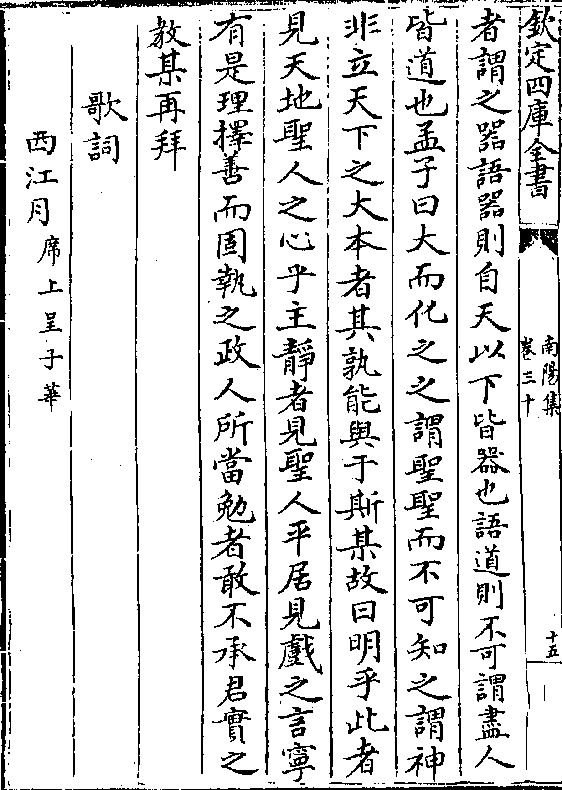 欽定四庫全書
南陽集
卷三十
十五
者謂之器語器則自天以下皆器也語道則不可謂盡人
皆道也孟子曰大而化之之謂聖聖而不可知之謂神
非立天下之大本者其孰能與于斯某故曰明乎此者
見天地聖人之心乎主靜者見聖人平居見戲之言寧
有是理擇善而固執之政人所當勉者敢不承君實之
教某再拜
歌詞
西江月席上呈子華